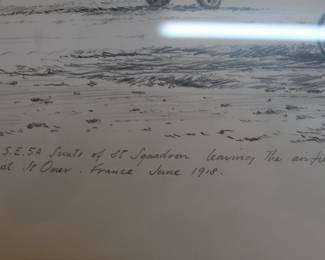 S.E.5A Scouts of 85 Squadron leaving the
St Omer. France June 1918.